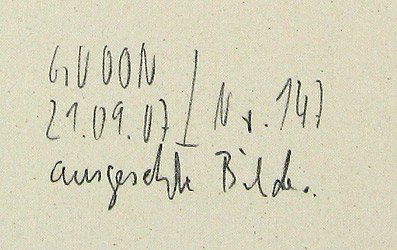 GUDON
21.09.07 | Nr. 147
ausgesetzte Bilder.